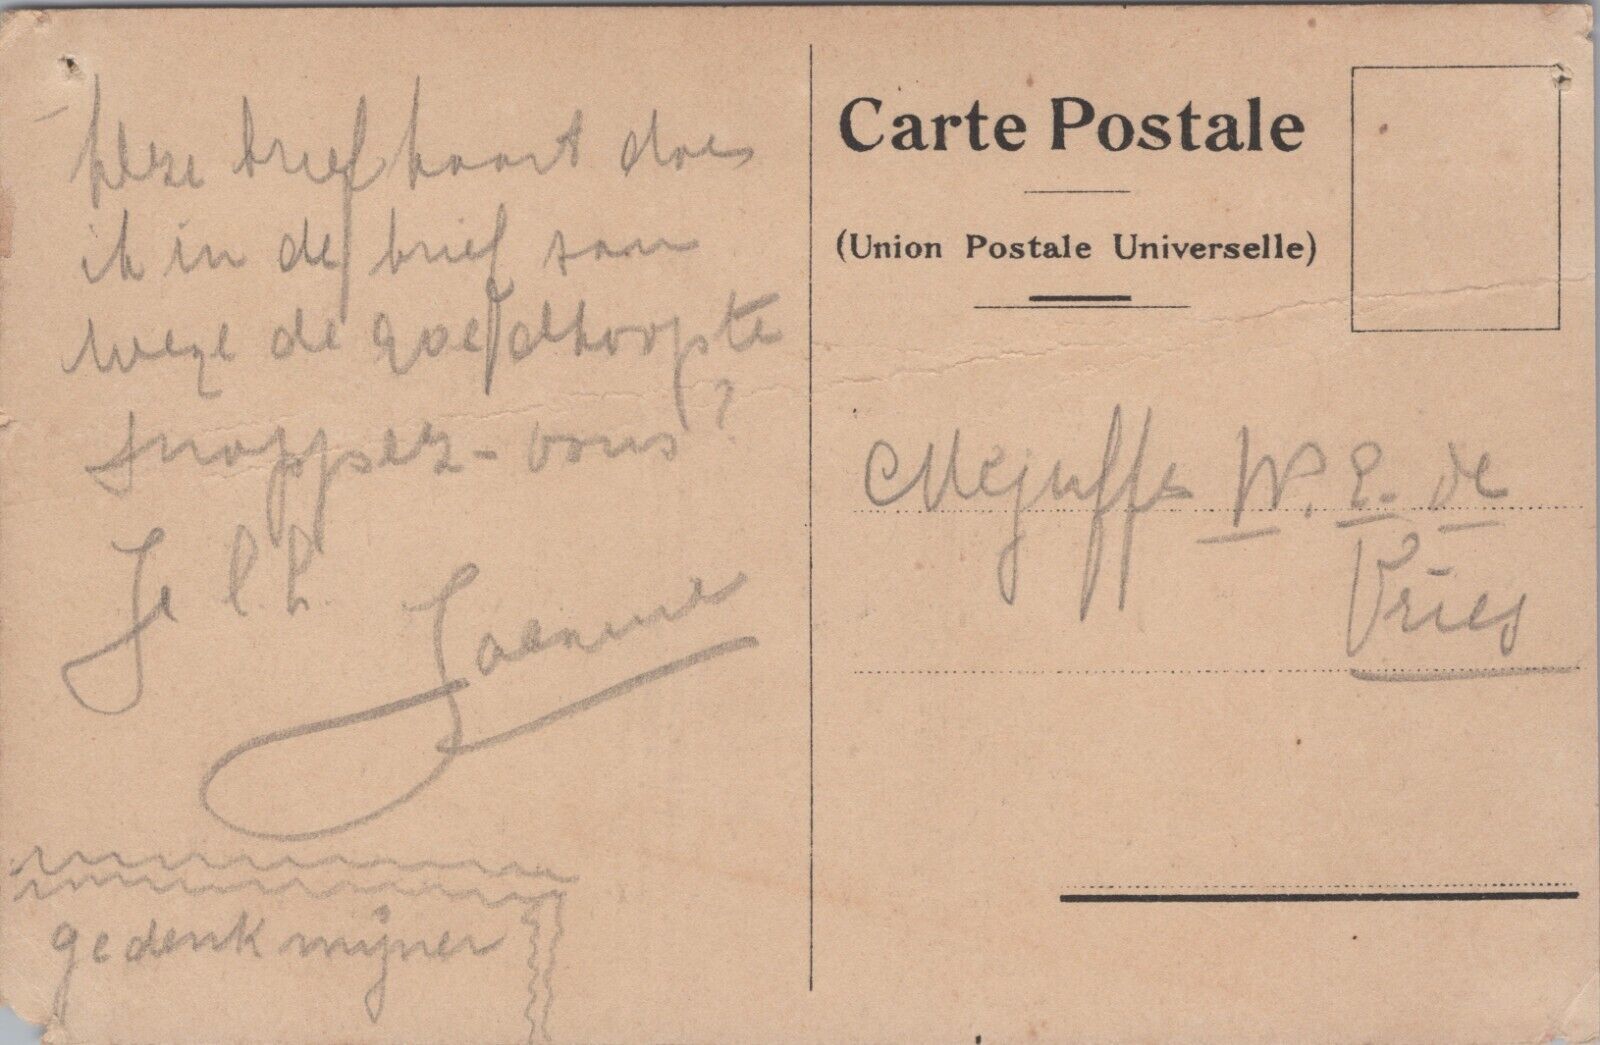 briefkaart doe
ik in de brief van
wege de goedkoopte
snappez-vous?
Je l.h.
gedenk mijner
Carte Postale
(Union Postale Universelle)
Mejuffr W. E. de
Vries